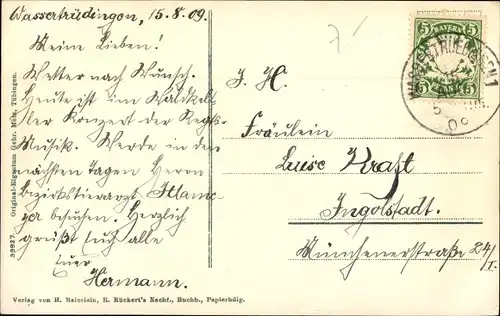 Wassertrüdingen, 15.8.09.
Meine Lieben!
Wetter nach Wunsch.
Heute ist im Waldkel=
ler Konzert der Regts=
Musik. Werde in den
nächsten Tagen Herrn
Bezirkstierarzt
besuchen. Herzlich
grüßt Euch alle
Euer
Hermann.
S. H.
Fräulein
Luise Kraft
Ingolstadt.
Münchenerstraße 24/I.
5 BAYERN 5
WASSERTRUEDINGEN 1
33927. Original-Eigentum Gebr. Metz, Tübingen.
Verlag von H. Halstlain, R. Rückert's Nachf., Buchh., Papierhdlg.